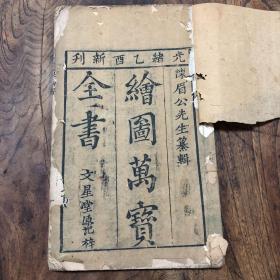 光緒乙酉新刊
陳眉公先生纂輯
繪圖萬寶
全書
文星堂記梓